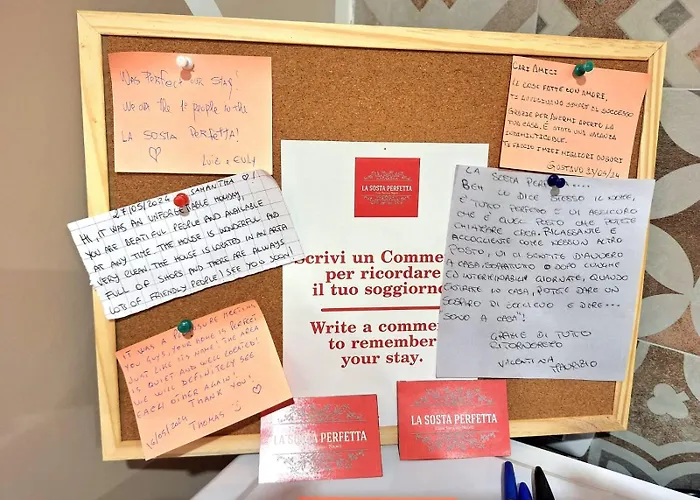 WAS PERFECT OUR STAY!
We are the 1st people in the
LA SOSTA PERFETTA!
LUIZ e EVLY
CARI AMICI
LE COSE FATTE CON AMORE,
TI AVVICINANO SEMPRE AL SUCCESSO
GRAZIE PER AVERMI APERTO LA
TUA CASA, È STATA UNA VACANZA
INDIMENTICABILE.
TI FACCIO I MIEI MIGLIORI AUGURI
GUSTAVO
27/05/2024 SAMANTHA
HI, IT WAS AN UNFORGETTABLE HOLIDAY,
YOU ARE BEATIFUL PEOPLE AND AVAILABLE
AT ANY TIME. THE HOUSE IS WONDERFUL AND
VERY CLEAN. THE HOUSE IS LOCATED IN AN AREA
FULL OF SHOPS AND THERE ARE ALWAYS
LOTS OF FRIENDLY PEOPLE! SEE YOU SOON!
LA SOSTA PERFETTA
Scrivi un Comme
per ricordare
il tuo soggiorno
Write a comme
to remember
your stay.
LA SOSTA PERFETTA....
BEH LO DICE STESSO IL NOME,
E' TUTTO PERFETTO E VI ASSICURO
CHE E' QUEL POSTO CHE POTETE
CHIAMARE CASA. RILASSANTE E
ACCOGLIENTE COME NESSUN ALTRO
POSTO, VI CI SENTITE DAVVERO
A CASA, SOPRATTUTTO DOPO LUNGHE
ED INTERMINABILI GIORNATE, QUANDO
ENTRATE IN CASA, POTETE DARE UN
SOSPIRO DI SOLLIEVO E DIRE...
"SONO A CASA"!
GRAZIE DI TUTTO
RITORNEREMO
VALENTINA
MAURIZIO
IT WAS A PLEASURE MEETING
YOU GUYS! YOUR HOME IS PERFECT
JUST LIKE ITS NAME! THE AREA
IS QUIET AND WELL LOCATED!
WE WILL DEFINITELY SEE
EACH OTHER AGAIN!
THANK YOU!
16/05/2024 THOMAS
LA SOSTA PERFETTA
LA SOSTA PERFETTA